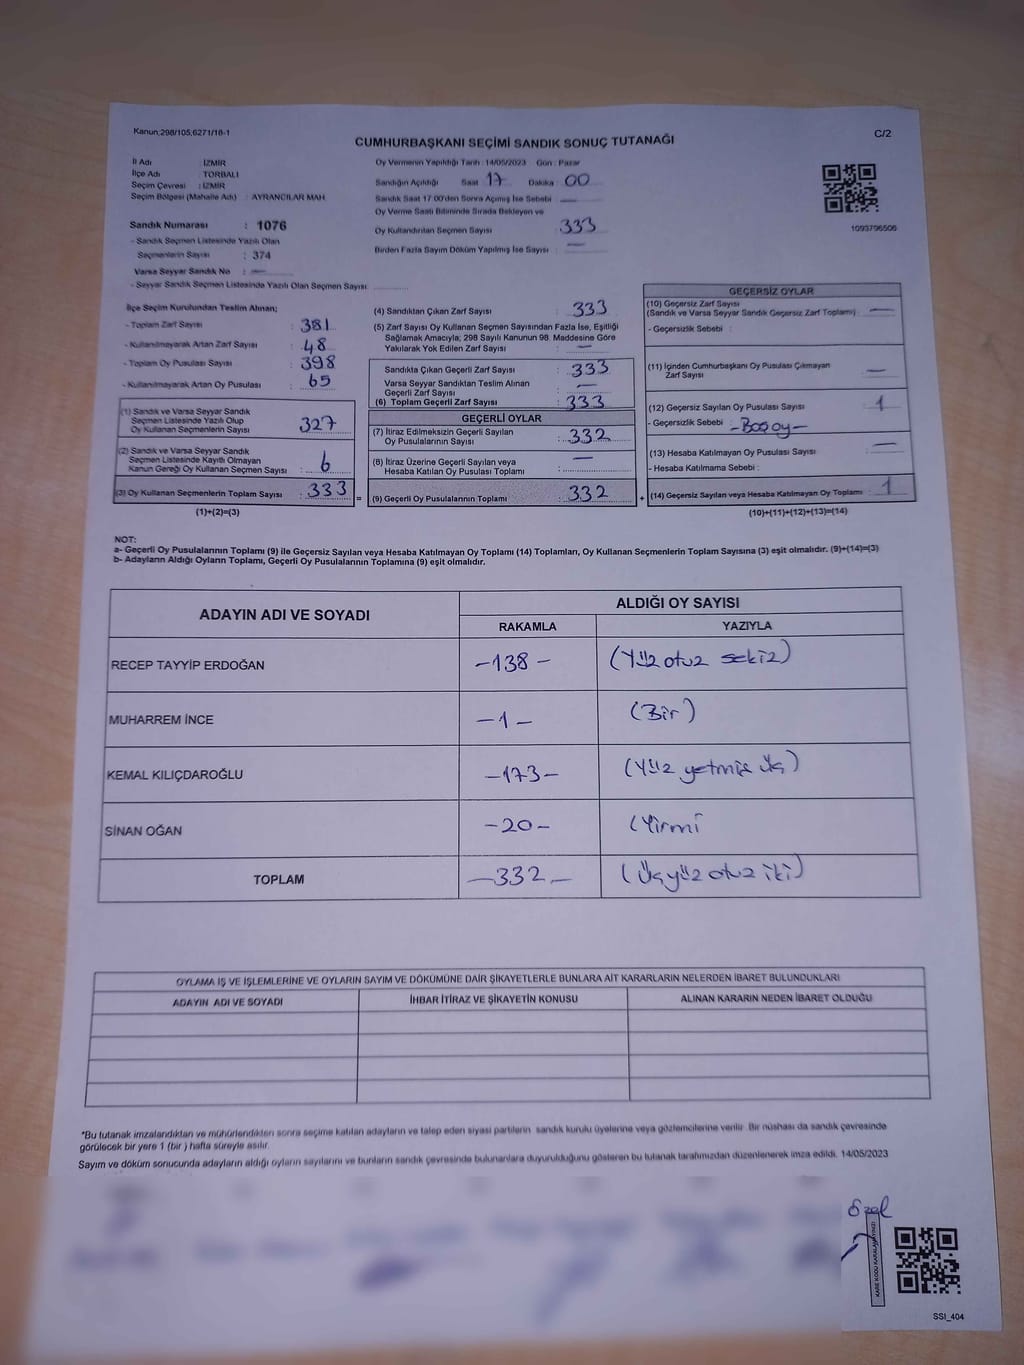 Kanun;298/105,6271/16-1
C/2
CUMHURBAŞKANI SEÇİMİ SANDIK SONUÇ TUTANAĞI
İl Adı : İZMİR
İlçe Adı : TORBALI
Seçim Çevresi : İZMİR
Seçim Bölgesi (Mahalle Adı) : AYRANCILAR MAH
Sandık Numarası : 1076
- Sandık Seçmen Listesinde Yazılı Olan
Seçmenlerin Sayısı : 374
Varsa Seyyar Sandık No : —
- Seyyar Sandık Seçmen Listesinde Yazılı Olan Seçmen Sayısı:
Oy Vermenin Yapıldığı Tarih : 14/05/2023 Gün : Pazar
Sandığın Açıldığı Saat 17 Dakika 00
Sandık Saat 17:00'den Sonra Açılmış İse Sebebi : —
Oy Verme Saati Bitiminde Sırada Bekleyen ve
Oy Kullandırılan Seçmen Sayısı : 333
Birden Fazla Sayım Döküm Yapılmış İse Sayısı : —
1093706506
İlçe Seçim Kurulundan Teslim Alınan;
- Toplam Zarf Sayısı : 381
- Kullanılmayarak Artan Zarf Sayısı : 48
- Toplam Oy Pusulası Sayısı : 398
- Kullanılmayarak Artan Oy Pusulası : 65
(1) Sandık ve Varsa Seyyar Sandık
Seçmen Listesinde Yazılı Olup
Oy Kullanan Seçmenlerin Sayısı : 327
(2) Sandık ve Varsa Seyyar Sandık
Seçmen Listesinde Kayıtlı Olmayan
Kanun Gereği Oy Kullanan Seçmen Sayısı : 6
(3) Oy Kullanan Seçmenlerin Toplam Sayısı : 333 =
(1)+(2)=(3)
(4) Sandıktan Çıkan Zarf Sayısı : 333
(5) Zarf Sayısı Oy Kullanan Seçmen Sayısından Fazla İse, Eşitliği
Sağlamak Amacıyla; 298 Sayılı Kanunun 98. Maddesine Göre
Yakılarak Yok Edilen Zarf Sayısı : —
Sandıkta Çıkan Geçerli Zarf Sayısı : 333
Varsa Seyyar Sandıktan Teslim Alınan
Geçerli Zarf Sayısı : —
(6) Toplam Geçerli Zarf Sayısı : 333
GEÇERLİ OYLAR
(7) İtiraz Edilmeksizin Geçerli Sayılan
Oy Pusulalarının Sayısı : 332
(8) İtiraz Üzerine Geçerli Sayılan veya
Hesaba Katılan Oy Pusulası Toplamı : —
(9) Geçerli Oy Pusulalarının Toplamı : 332 +
GEÇERSİZ OYLAR
(10) Geçersiz Zarf Sayısı
(Sandık ve Varsa Seyyar Sandık Geçersiz Zarf Toplamı) : —
- Geçersizlik Sebebi :
(11) İçinden Cumhurbaşkanı Oy Pusulası Çıkmayan
Zarf Sayısı : —
(12) Geçersiz Sayılan Oy Pusulası Sayısı : 1
- Geçersizlik Sebebi : -Boş oy-
(13) Hesaba Katılmayan Oy Pusulası Sayısı : —
- Hesaba Katılmama Sebebi :
(14) Geçersiz Sayılan veya Hesaba Katılmayan Oy Toplamı : 1
(10)+(11)+(12)+(13)=(14)
NOT:
a- Geçerli Oy Pusulalarının Toplamı (9) ile Geçersiz Sayılan veya Hesaba Katılmayan Oy Toplamı (14) Toplamları, Oy Kullanan Seçmenlerin Toplam Sayısına (3) eşit olmalıdır. (9)+(14)=(3)
b- Adayların Aldığı Oyların Toplamı, Geçerli Oy Pusulalarının Toplamına (9) eşit olmalıdır.
ADAYIN ADI VE SOYADI ALDIĞI OY SAYISI
RAKAMLA YAZIYLA
RECEP TAYYİP ERDOĞAN -138- (Yüz otuz sekiz)
MUHARREM İNCE -1- (Bir)
KEMAL KILIÇDAROĞLU -173- (Yüz yetmiş üç)
SİNAN OĞAN -20- (Yirmi
TOPLAM -332- (Üçyüz otuz iki)
OYLAMA İŞ VE İŞLEMLERİNE VE OYLARIN SAYIM VE DÖKÜMÜNE DAİR ŞİKAYETLERLE BUNLARA AİT KARARLARIN NELERDEN İBARET BULUNDUKLARI
ADAYIN ADI VE SOYADI İHBAR İTİRAZ VE ŞİKAYETİN KONUSU ALINAN KARARIN NEDEN İBARET OLDUĞU
*Bu tutanak imzalandıktan ve mühürlendikten sonra seçime katılan adayların ve talep eden siyasi partilerin sandık kurulu üyelerine veya gözlemcilerine verilir. Bir nüshası da sandık çevresinde
görülecek bir yere 1 (bir) hafta süreyle asılır.
Sayım ve döküm sonucunda adayların aldığı oyların sayılarını ve bunların sandık çevresinde bulunanlara duyurulduğunu gösteren bu tutanak tarafımızdan düzenlenerek imza edildi. 14/05/2023
Özel
SSI_404